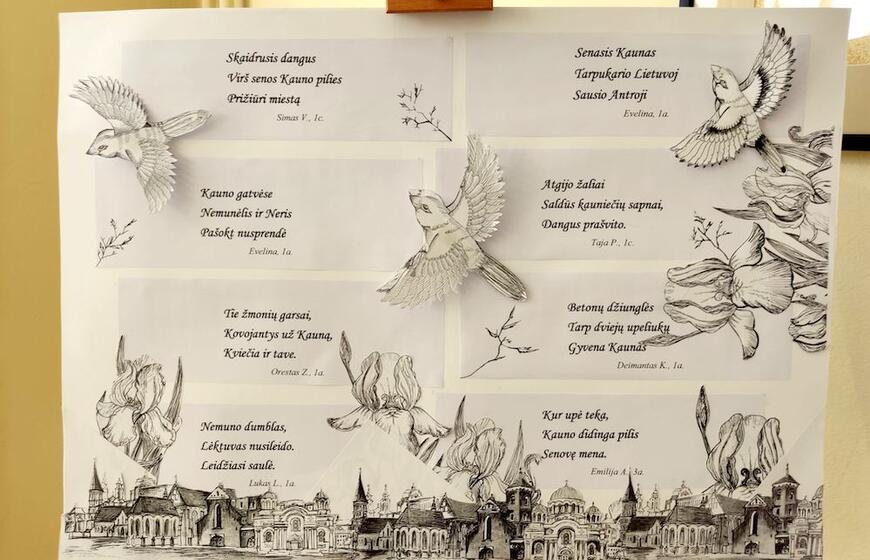 Skaidrusis dangus
Virš senos Kauno pilies
Prižiūri miestą
Simas V., 1c.
Senasis Kaunas
Tarpukario Lietuvoj
Sausio Antroji
Evelina, 1a.
Kauno gatvėse
Nemunėlis ir Neris
Pašokt nusprendė
Evelina, 1a.
Atgijo žaliai
Saldūs kauniečių sapnai,
Dangus prašvito.
Taja P., 1c.
Tie žmonių garsai,
Kovojantys už Kauną,
Kviečia ir tave.
Orestas Z., 1a.
Betonų džiunglės
Tarp dviejų upeliukų
Gyvena Kaunas
Deimantas K., 1a.
Nemuno dumblas,
Lėktuvas nusileido.
Leidžiasi saulė.
Lukas L., 1a.
Kur upė teka,
Kauno didinga pilis
Senovę mena.
Emilija A., 3a.